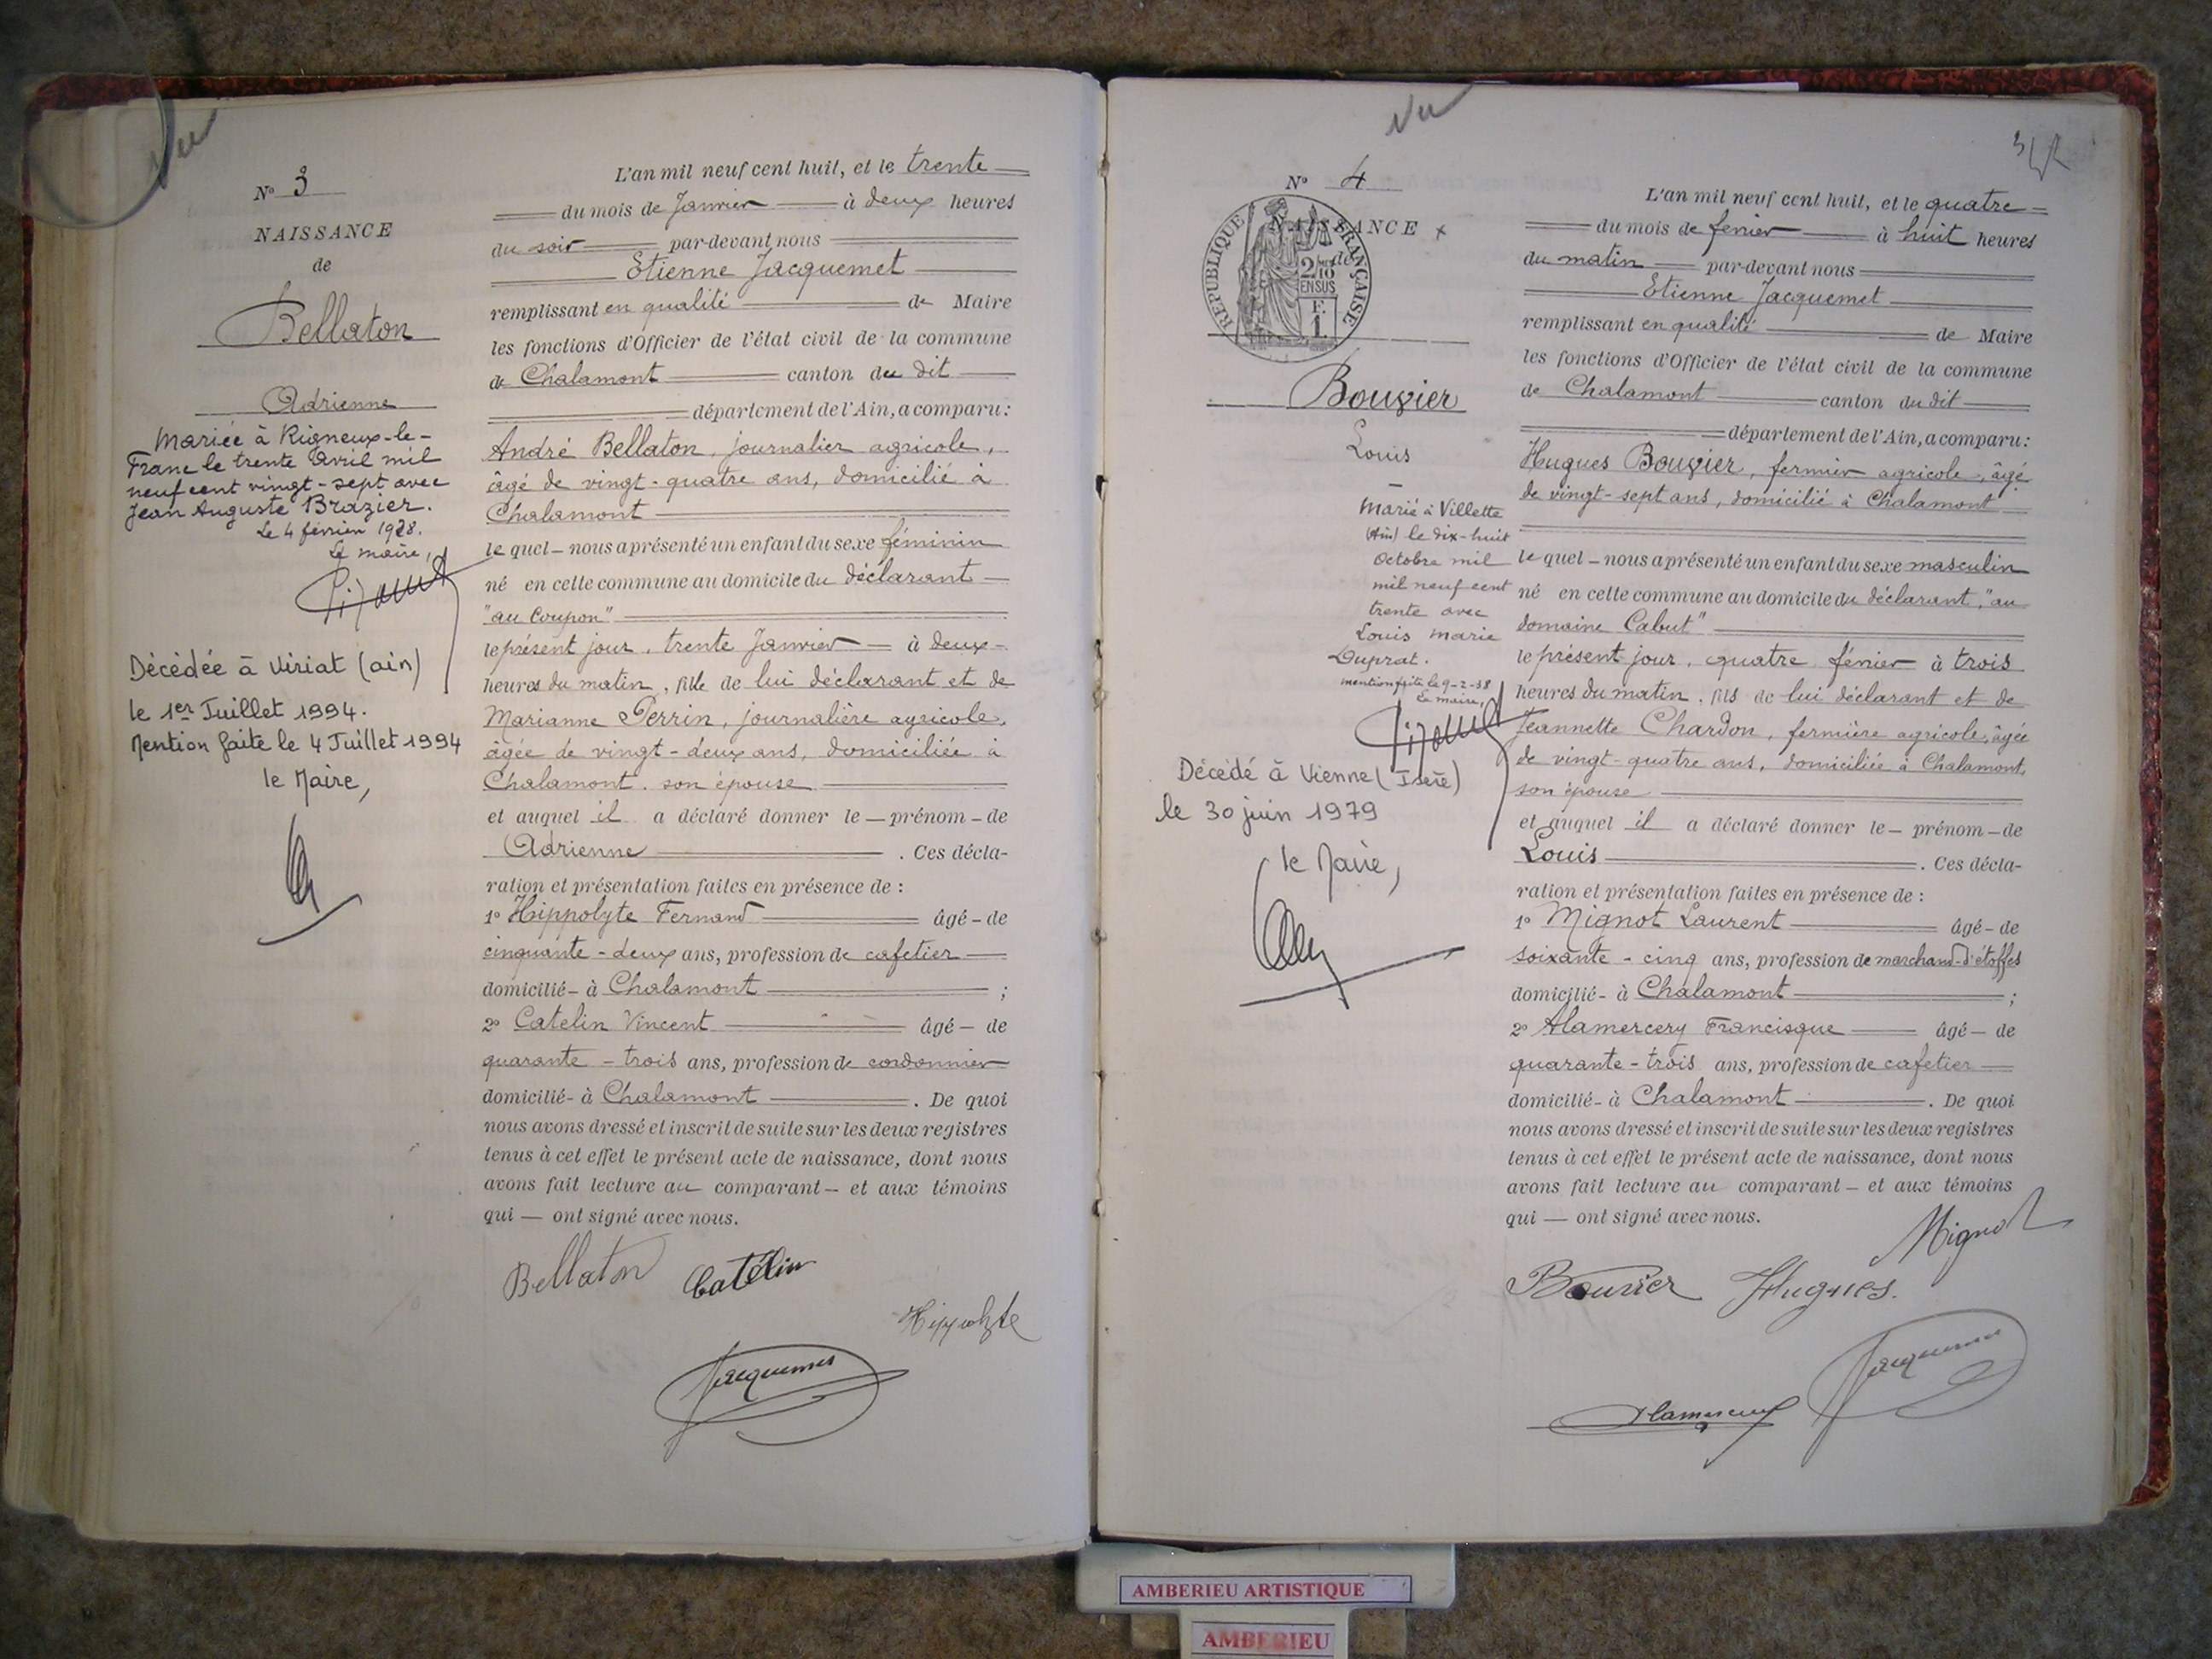 Vu
N° 3
NAISSANCE
de
Bellaton
Adrienne
Mariée à Rigneux-le-
Franc le trente Avril mil
neuf cent vingt-sept avec
Jean Auguste Brazier.
Le 4 février 1928.
Le maire,
Décédée à Viriat (ain)
le 1er Juillet 1994.
Mention faite le 4 Juillet 1994
le Maire,
L'an mil neuf cent huit, et le trente
du mois de Janvier à deux heures
du soir par-devant nous
Etienne Jacquemet
remplissant en qualité de Maire
les fonctions d'Officier de l'état civil de la commune
de Chalamont canton du dit
département de l'Ain, a comparu:
André Bellaton, journalier agricole,
âgé de vingt-quatre ans, domicilié à
Chalamont
le quel – nous a présenté un enfant du sexe féminin
né en cette commune au domicile du déclarant
"au Coupon"
le présent jour, trente Janvier à deux
heures du matin, fille de lui déclarant et de
Marianne Perrin, journalière agricole,
âgée de vingt-deux ans, domiciliée à
Chalamont, son épouse
et auquel il a déclaré donner le – prénom – de
Adrienne . Ces décla-
ration et présentation faites en présence de :
1° Hippolyte Fernand âgé – de
cinquante-deux ans, profession de cafetier
domicilié – à Chalamont ;
2° Catelin Vincent âgé – de
quarante – trois ans, profession de cordonnier
domicilié – à Chalamont . De quoi
nous avons dressé et inscrit de suite sur les deux registres
tenus à cet effet le présent acte de naissance, dont nous
avons fait lecture au comparant – et aux témoins
qui — ont signé avec nous.
Bellaton Catélin
Hippolyte
Jacquemet
Vu
N° 4
NAISSANCE
de
RÉPUBLIQUE FRANÇAISE
2/10
EN SUS
F.
1.
Bouvier
Louis
Marié à Villette
(Ain) le dix-huit
Octobre mil
mil neuf cent
trente avec
Louis Marie
Duprat.
mention faite le 9-2-38
Le maire,
Décédé à Vienne (Isère)
le 30 juin 1979
le Maire,
L'an mil neuf cent huit, et le quatre
du mois de février à huit heures
du matin par-devant nous
Etienne Jacquemet
remplissant en qualité de Maire
les fonctions d'Officier de l'état civil de la commune
de Chalamont canton du dit
département de l'Ain, a comparu:
Hugues Bouvier, fermier agricole, âgé
de vingt-sept ans, domicilié à Chalamont
le quel – nous a présenté un enfant du sexe masculin
né en cette commune au domicile du déclarant, "au
domaine Cabut"
le présent jour, quatre février à trois
heures du matin, fils de lui déclarant et de
Jeannette Chardon, fermière agricole, âgée
de vingt-quatre ans, domiciliée à Chalamont,
son épouse
et auquel il a déclaré donner le – prénom – de
Louis . Ces décla-
ration et présentation faites en présence de :
1° Mignot Laurent âgé – de
soixante – cinq ans, profession de marchand d'étoffes
domicilié – à Chalamont ;
2° Alamercery Francisque âgé – de
quarante – trois ans, profession de cafetier
domicilié – à Chalamont . De quoi
nous avons dressé et inscrit de suite sur les deux registres
tenus à cet effet le présent acte de naissance, dont nous
avons fait lecture au comparant – et aux témoins
qui — ont signé avec nous.
Mignot
Bouvier Hugues.
Jacquemet
Alamercery
AMBERIEU ARTISTIQUE
AMBERIEU